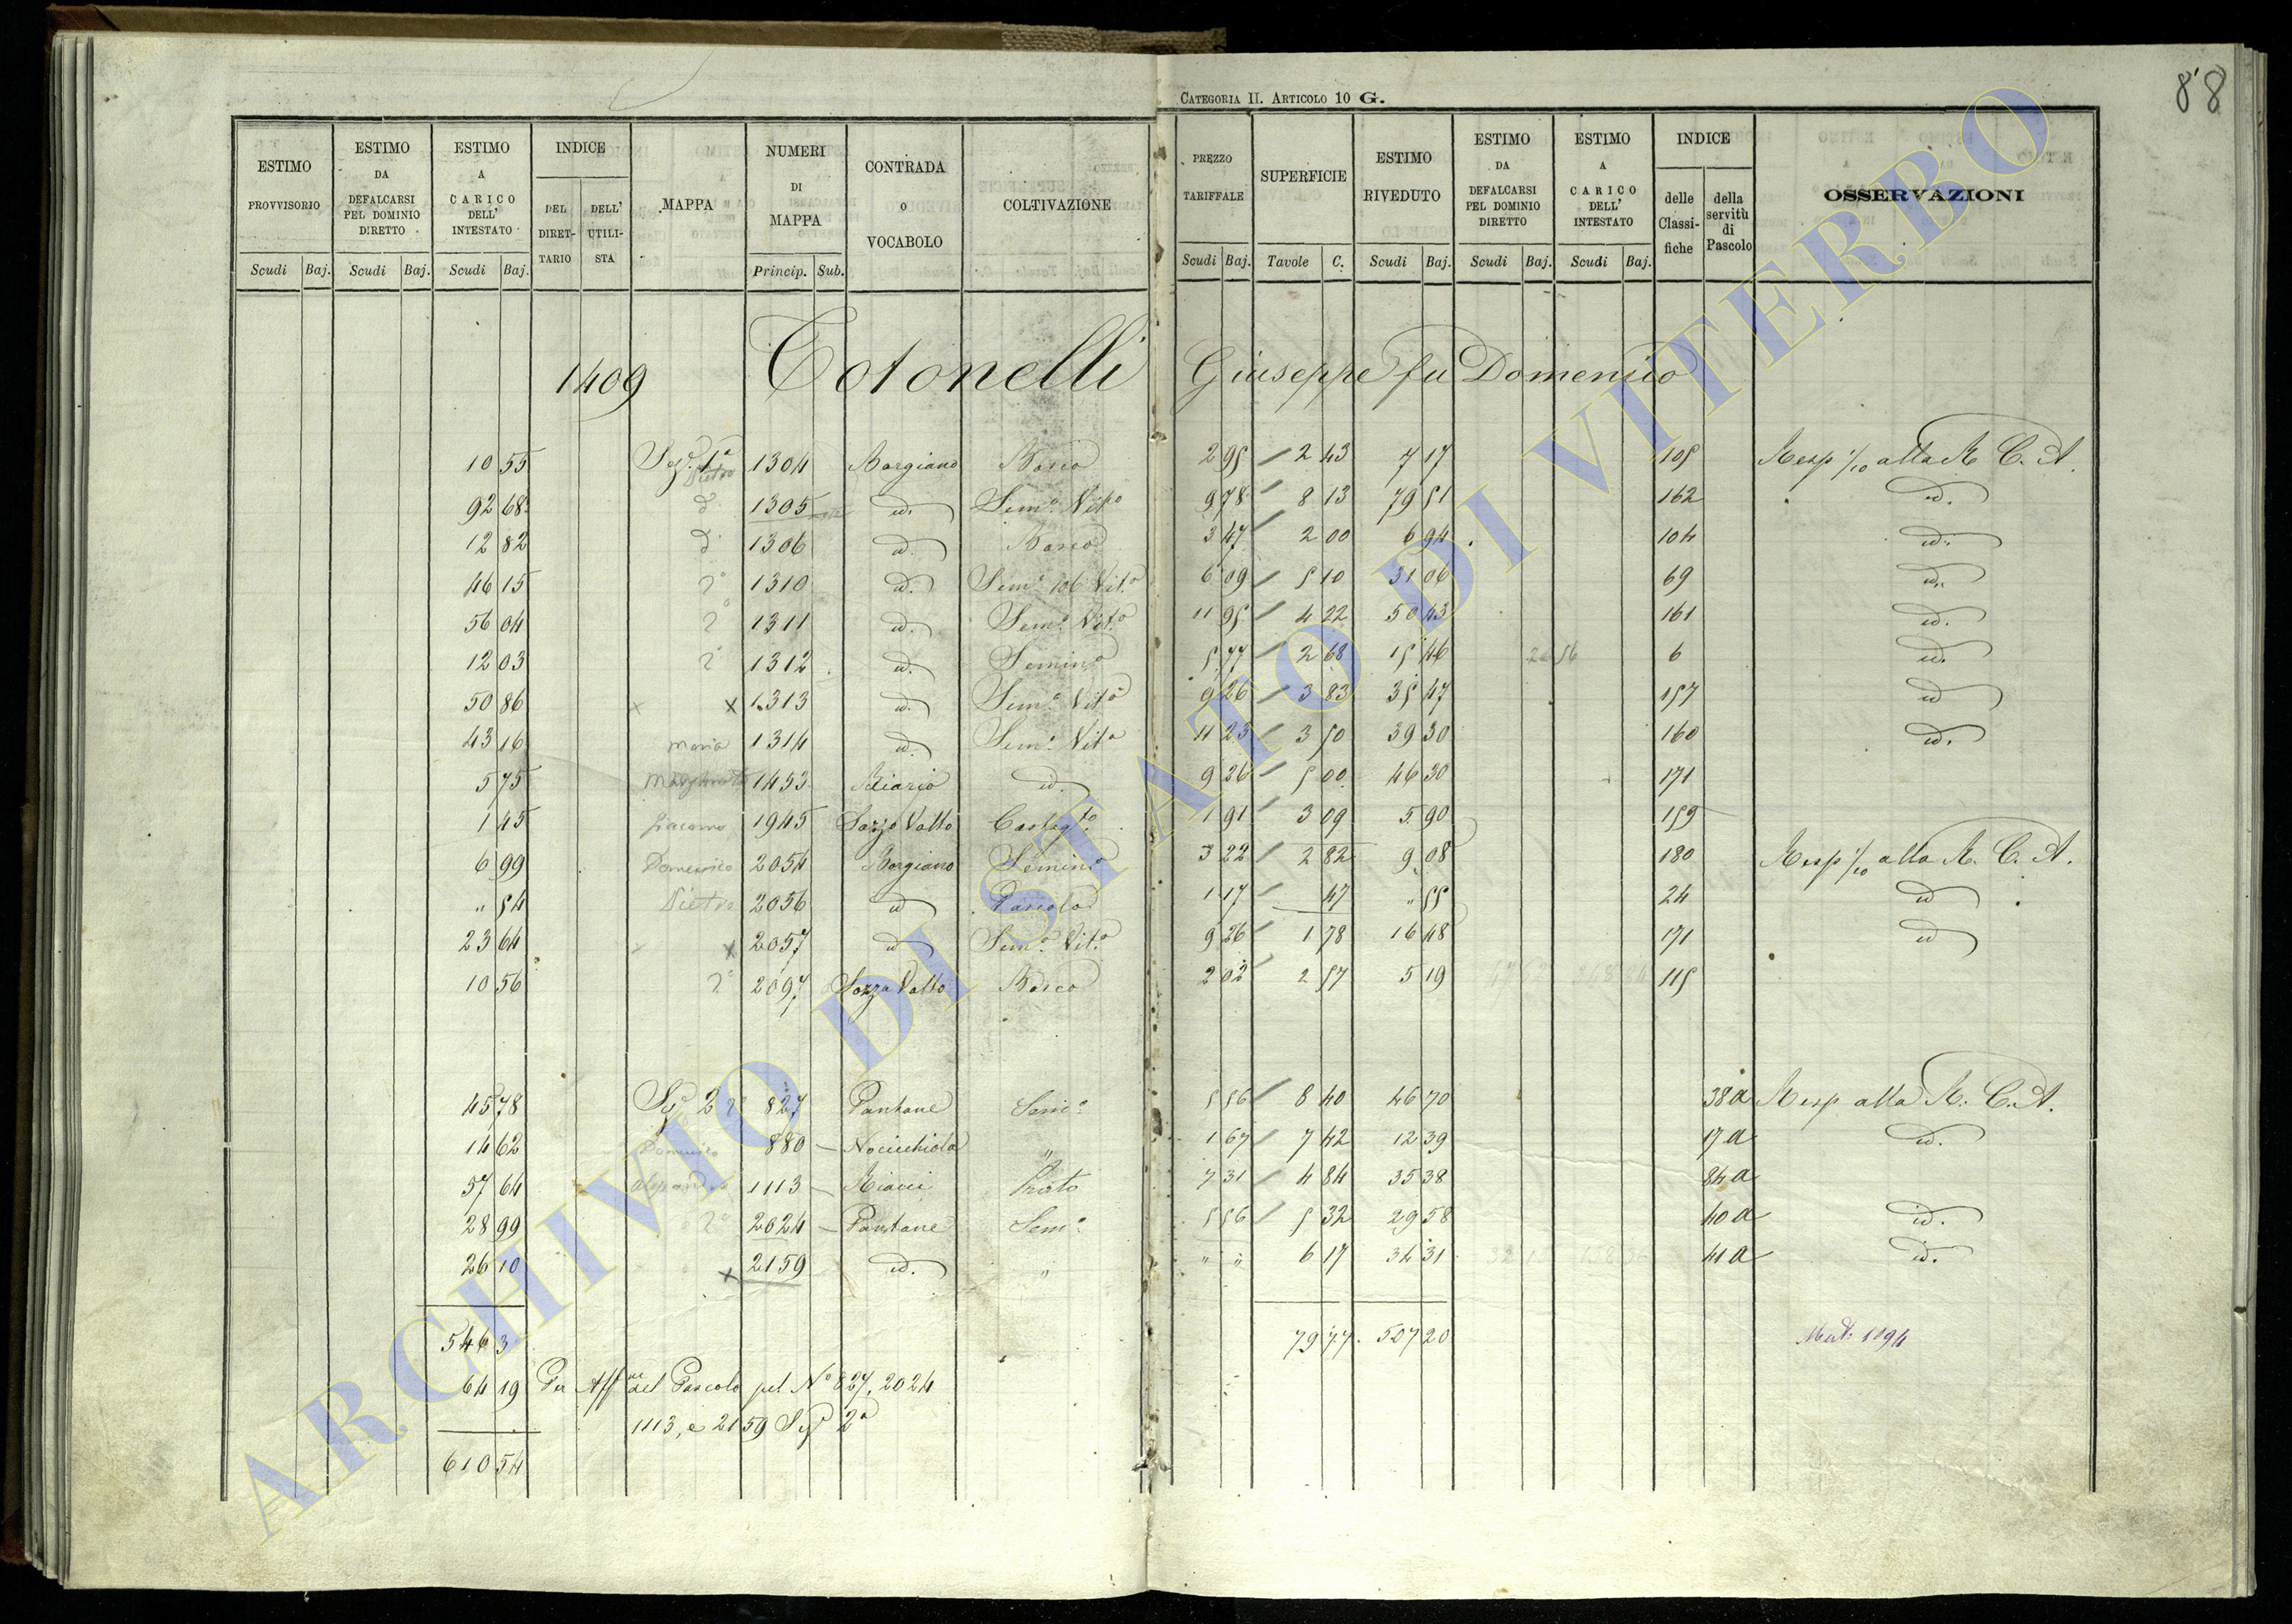 88
CATEGORIA II. ARTICOLO 10 G.
ESTIMO PROVVISORIO Scudi Baj. | ESTIMO DA DEFALCARSI PEL DOMINIO DIRETTO Scudi Baj. | ESTIMO A CARICO DELL' INTESTATO Scudi Baj. | INDICE DEL DIRETTARIO DELL' UTILISTA | MAPPA | NUMERI DI MAPPA Princip. Sub. | CONTRADA O VOCABOLO | COLTIVAZIONE | PREZZO TARIFFALE Scudi Baj. | SUPERFICIE Tavole C. | ESTIMO RIVEDUTO Scudi Baj. | ESTIMO DA DEFALCARSI PEL DOMINIO DIRETTO Scudi Baj. | ESTIMO A CARICO DELL' INTESTATO Scudi Baj. | INDICE delle Classifiche della servitù di Pascolo | OSSERVAZIONI
1409 Totonelli Giuseppe fu Domenico
10 55 Sez.e 1a Pietro 1304 Morgiano Bosco 2 95 2 43 7 17 105 Resp 1/10 alla R. C. A.
92 68 1305 id. Sem.o Vit.o 9 78 8 13 79 51 162 id.
12 82 1306 id. Bosco 3 47 2 00 6 94 104 id.
46 15 1310 id. Sem.o Vit.o 6 09 5 10 31 06 69 id.
56 04 1311 id. Sem.o Vit.o 11 95 4 22 50 43 161 id.
12 03 1312 id. Semin.o 5 77 2 68 15 46 6 id.
50 86 x 1313 id. Sem.o Vit.o 9 26 3 83 35 47 157 id
43 16 Maria 1314 id. Sem.o Vit.o 11 23 3 50 39 30 160 id.
5 75 1453 id. 9 26 5 00 46 30 171
1 45 Giacomo 1945 Sozzo Vallo Castag.to 1 91 3 09 5 90 159
6 99 Domenico 2054 Morgiano Semin.o 3 22 2 82 9 08 180 Resp 1/10 alla R. C. A.
" 54 Pietro 2056 id Pascolo 1 17 47 " 55 24 id
23 64 x 2057 id Sem.o Vit.o 9 26 1 78 16 48 171 id
10 56 2097 Sozzo Vallo Bosco 2 02 2 57 5 19 115
45 78 Sez.e 2 827 Pantane Sem.o 5 56 8 40 46 70 38a Resp. alla R. C. A.
14 62 Domenico 880 Nocicchiola " 1 67 7 42 12 39 17a id.
57 64 1113 Riacci Prato 7 31 4 84 35 38 84a
28 99 2024 Pantane Sem.o 5 56 5 32 29 58 40a id.
26 10 x 2159 id. " " " 6 17 34 31 41a id.
546 3 79 77 507 20
64 19 Per Aff.ne del Pascolo pel No 827, 2024
1113, e 2159 Sez.e 2a
610 54
ARCHIVIO DI STATO DI VITERBO